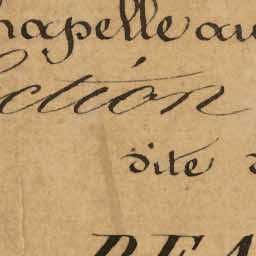 hapelle au
ction
dite d
BEA